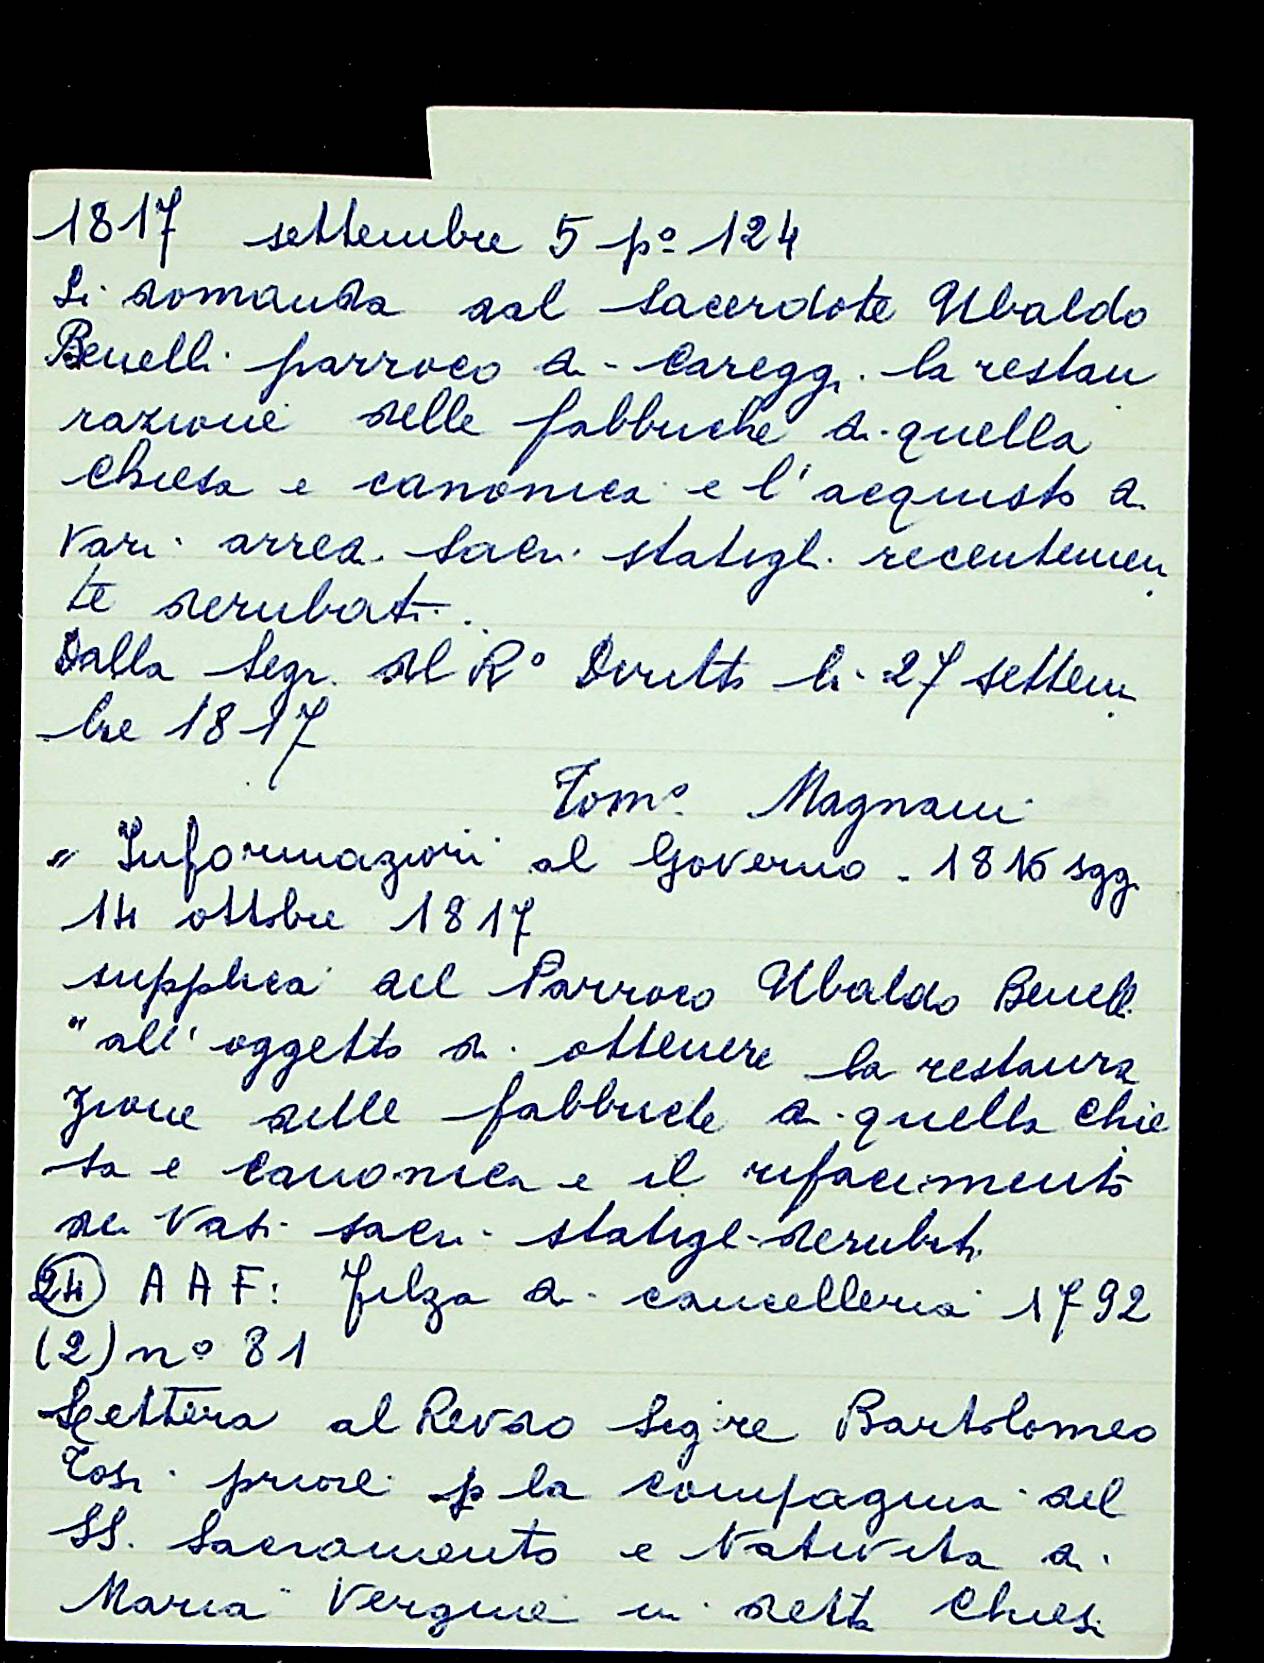 1817 settembre 5 pº 124
Si domanda dal Sacerdote Ubaldo
Benelli parroco di Careggi la restau
razione delle fabbriche di quella
chiesa e canonica e l'acquisto di
vari arredi sacri statigli recentemen
te derubati.
Dalla Segr. del Rº Diritto li 27 settem
bre 1817
Tomº Magnani
" Informazioni al Governo - 1816 sgg.
14 ottobre 1817
supplica del Parroco Ubaldo Benelli
"all'oggetto di ottenere la restaura
zione delle fabbriche di quella chie
sa e canonica e il rifacimento
di vasi sacri statigli derubati
(24) AAF: Filza di cancelleria 1792
(2) nº 81
Lettera al Revdo Sigre Bartolomeo
Tosi priore p la compagnia del
SS. Sacramento e Natività di
Maria Vergine in detta Chiesa